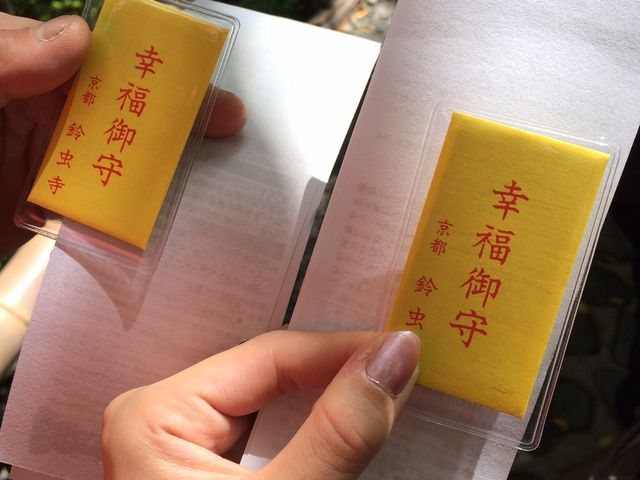 幸福御守
京都 鈴虫寺
幸福御守
京都 鈴虫